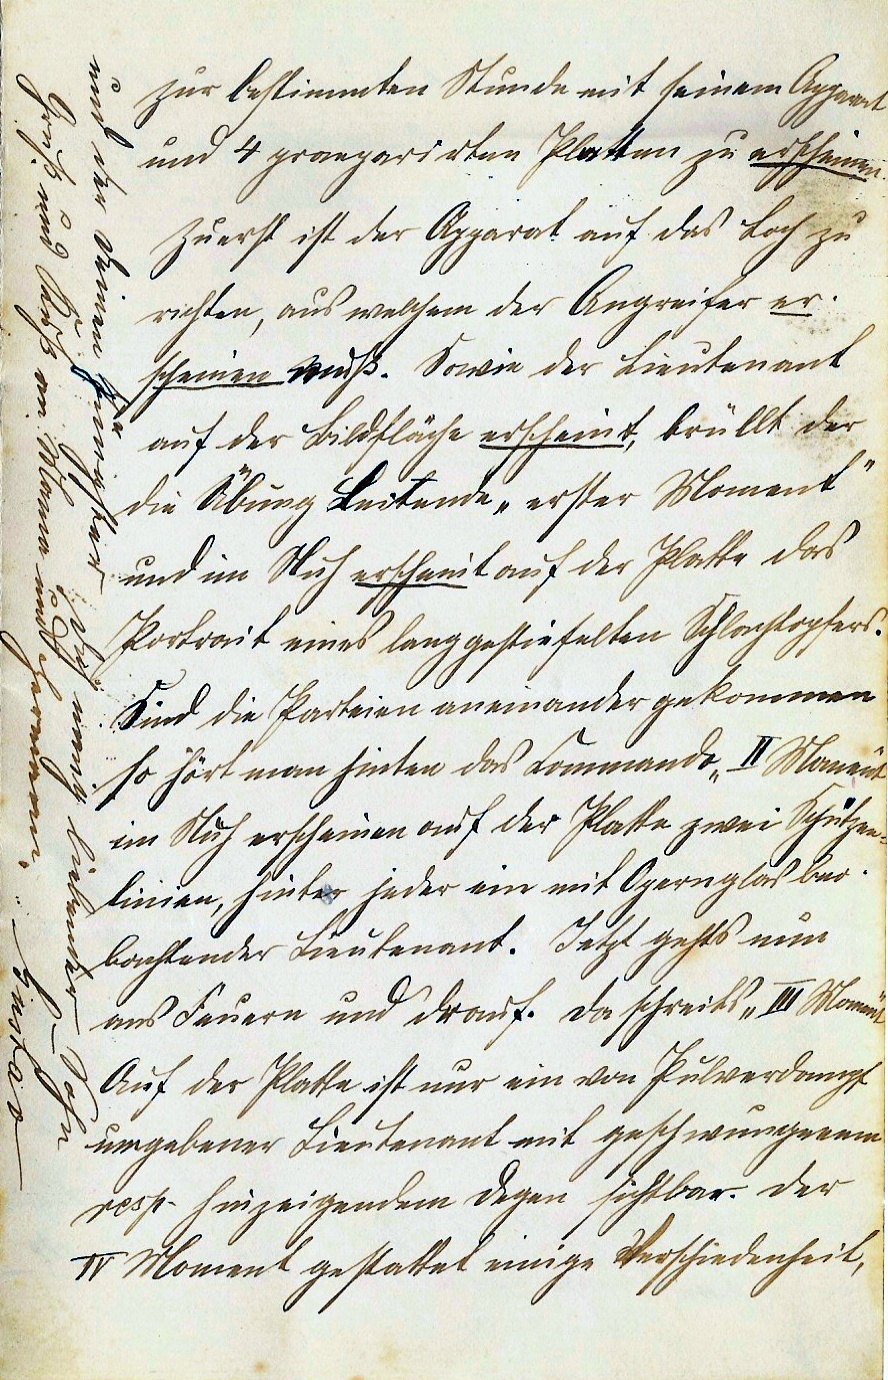 zur bestimmten Stunde mit seinem Apparat
und 4 praeparirten Platten zu erscheinen.
Zuerst ist der Apparat auf das Loch zu
richten, aus welchem der Angreifer er-
scheinen muß. Sowie der Lieutenant
auf der Bildfläche erscheint, brüllt der
die Übung Leitende „erster Moment"
und im Nuh erscheint auf der Platte das
Portrait eines langgestiefelten Schlachtopfers.
Sind die Parteien aneinander gekommen
so hört man hinten das Commando „II Moment"
im Nuh erscheinen auf der Platte zwei Schützen-
linien, hinter jeder ein mit Opernglas beo-
bachtender Lieutenant. Jetzt gehts nun
ans Feuern und drauf. Da schreits „III Moment"
Auf der Platte ist nur ein von Pulverdampf
umgebener Lieutenant mit geschwungenem
resp. hinzeigendem Degen sichtbar. Der
IV Moment gestattet einige Verschiedenheit,
und der Deinen
Dich innig liebender Sohn
Gruß und Kuß an Mama und Hermann
Gustav